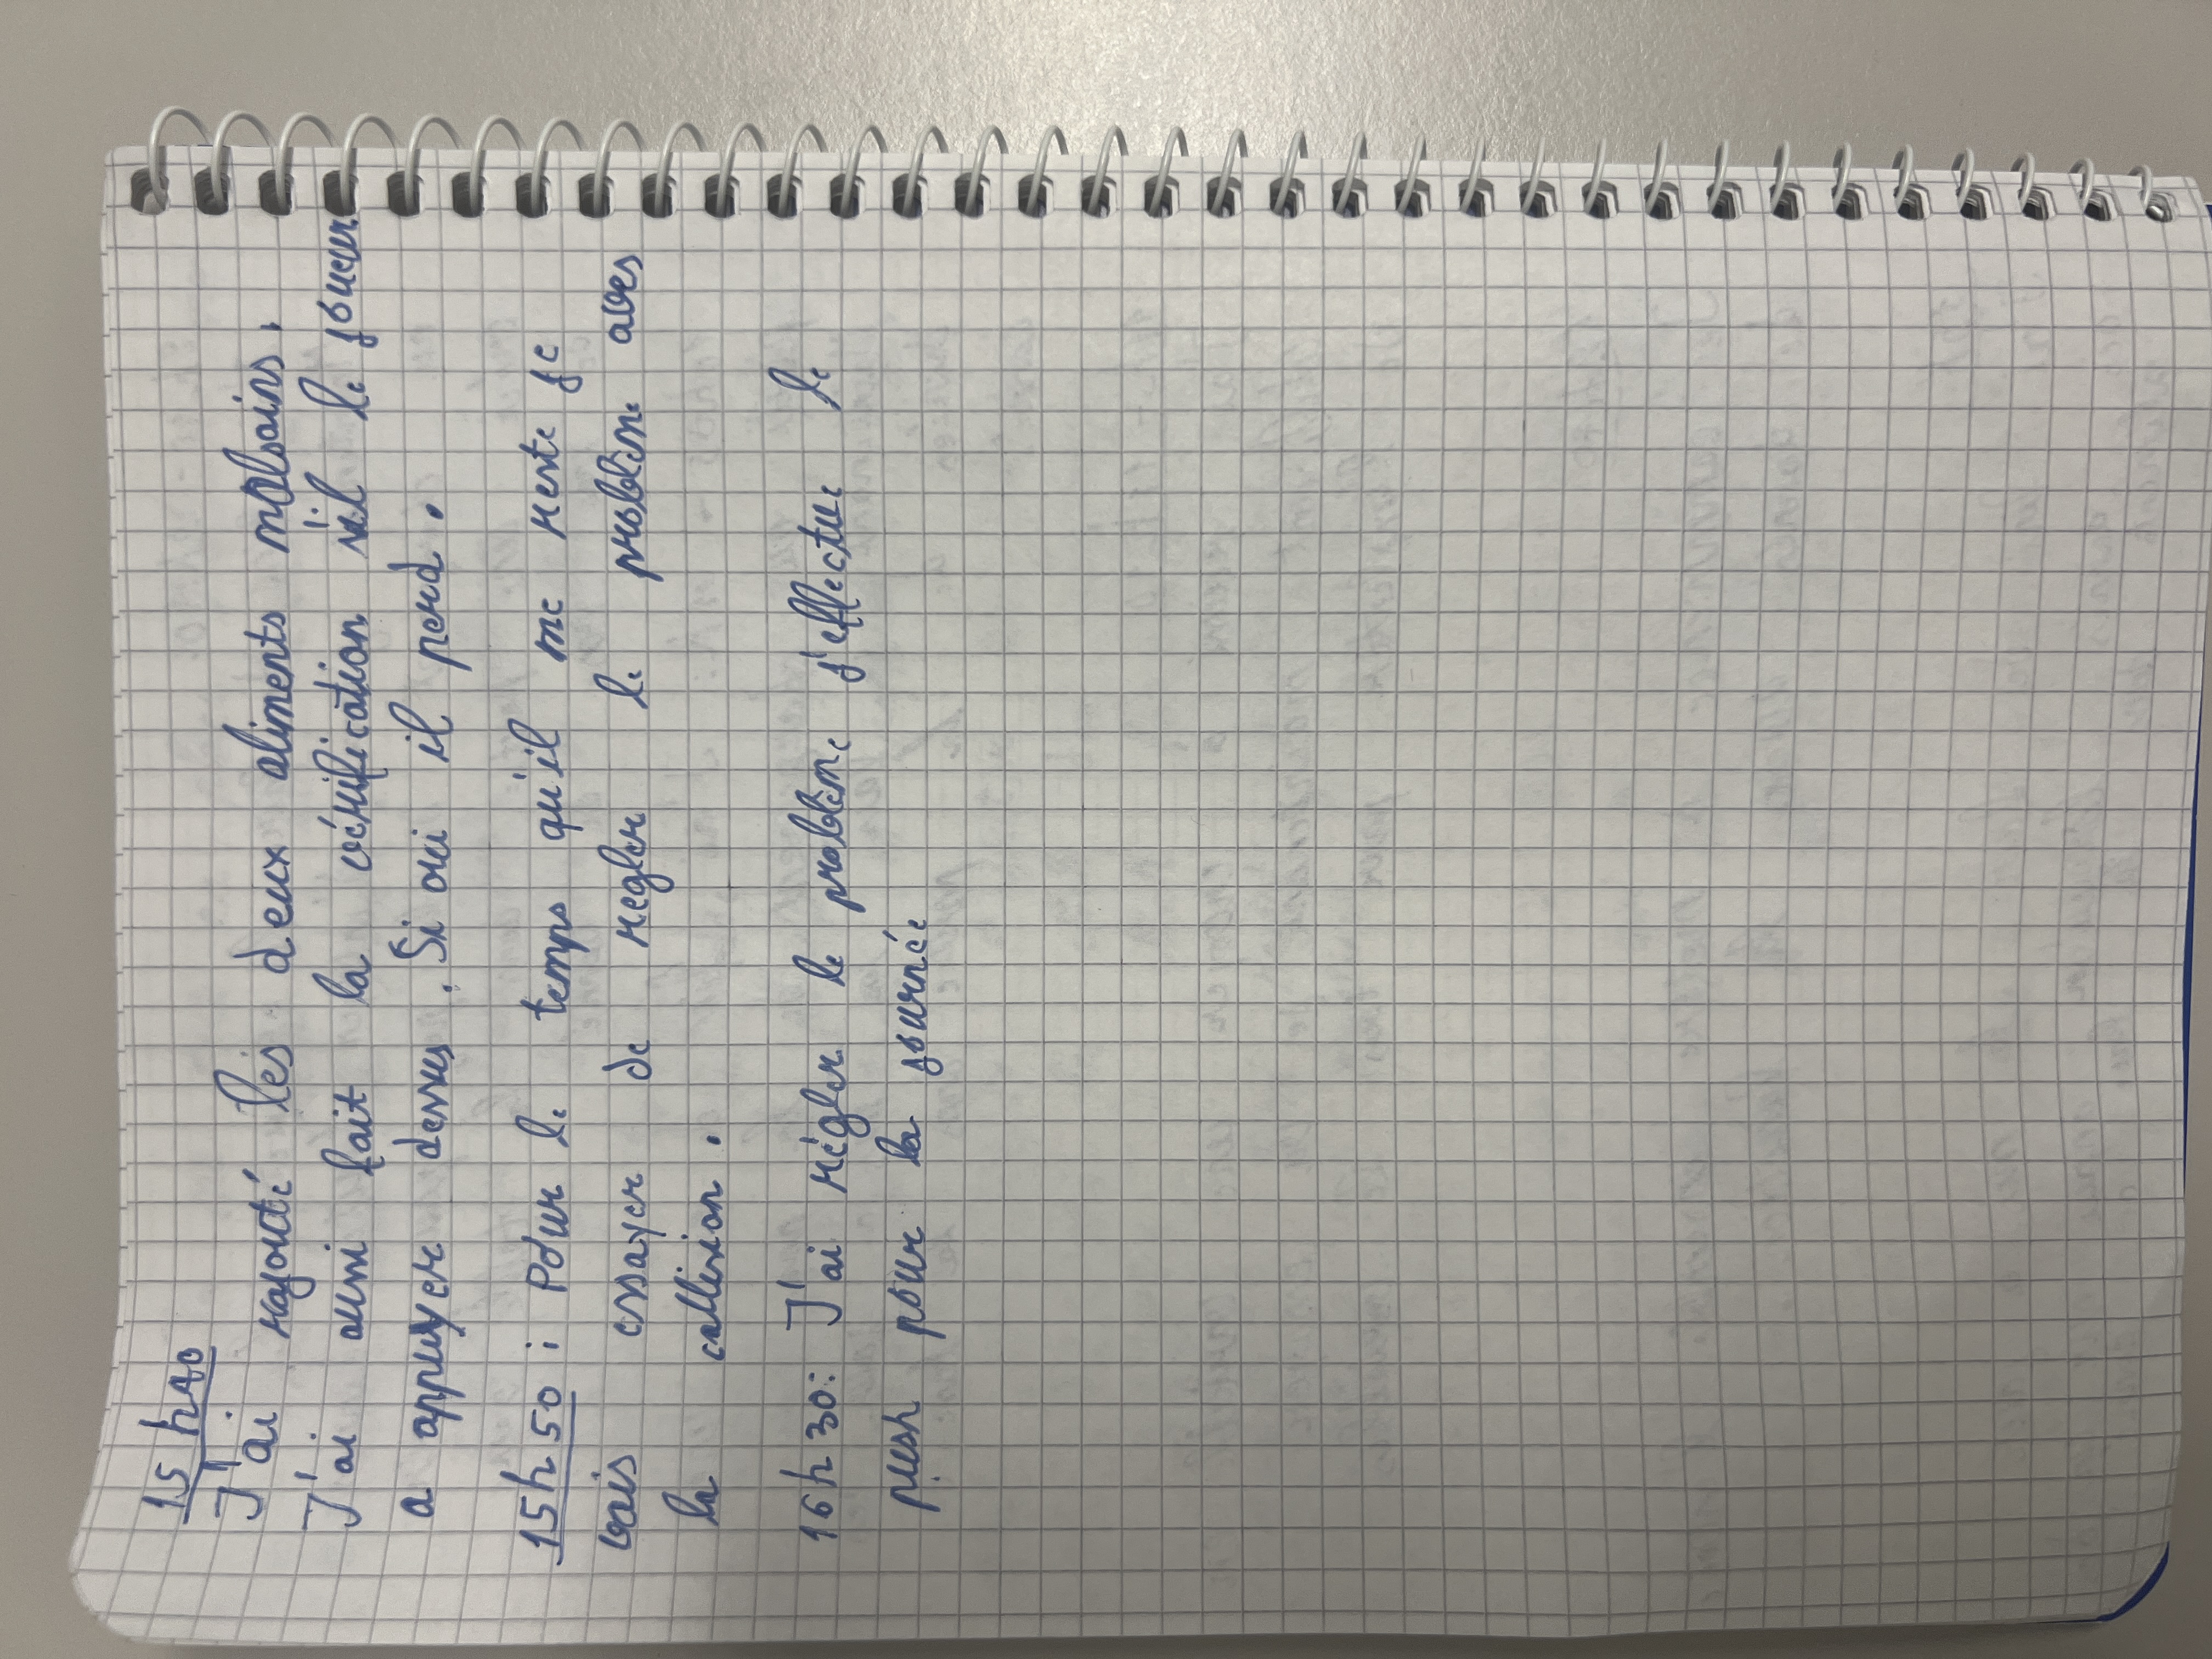 15h40
J'ai rajouté les deux aliments malsains.
J'ai aussi fait la vérification s'il le joueur
a appuyer dessus. Si oui il perd.
15h50 : Pour le temps qu'il me reste je
vais essayer de regler le problème avec
la collision.
16h30: J'ai régler le problème j'effectue le
push pour la journée